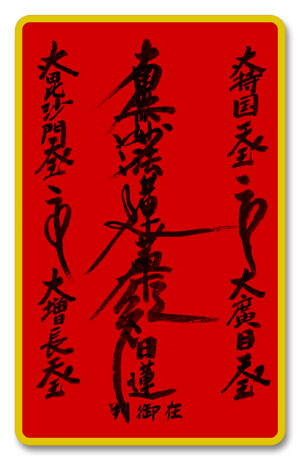 大持国天王
大廣目天王
南無妙法蓮華経
日蓮
在御判
大毘沙門天王
大増長天王